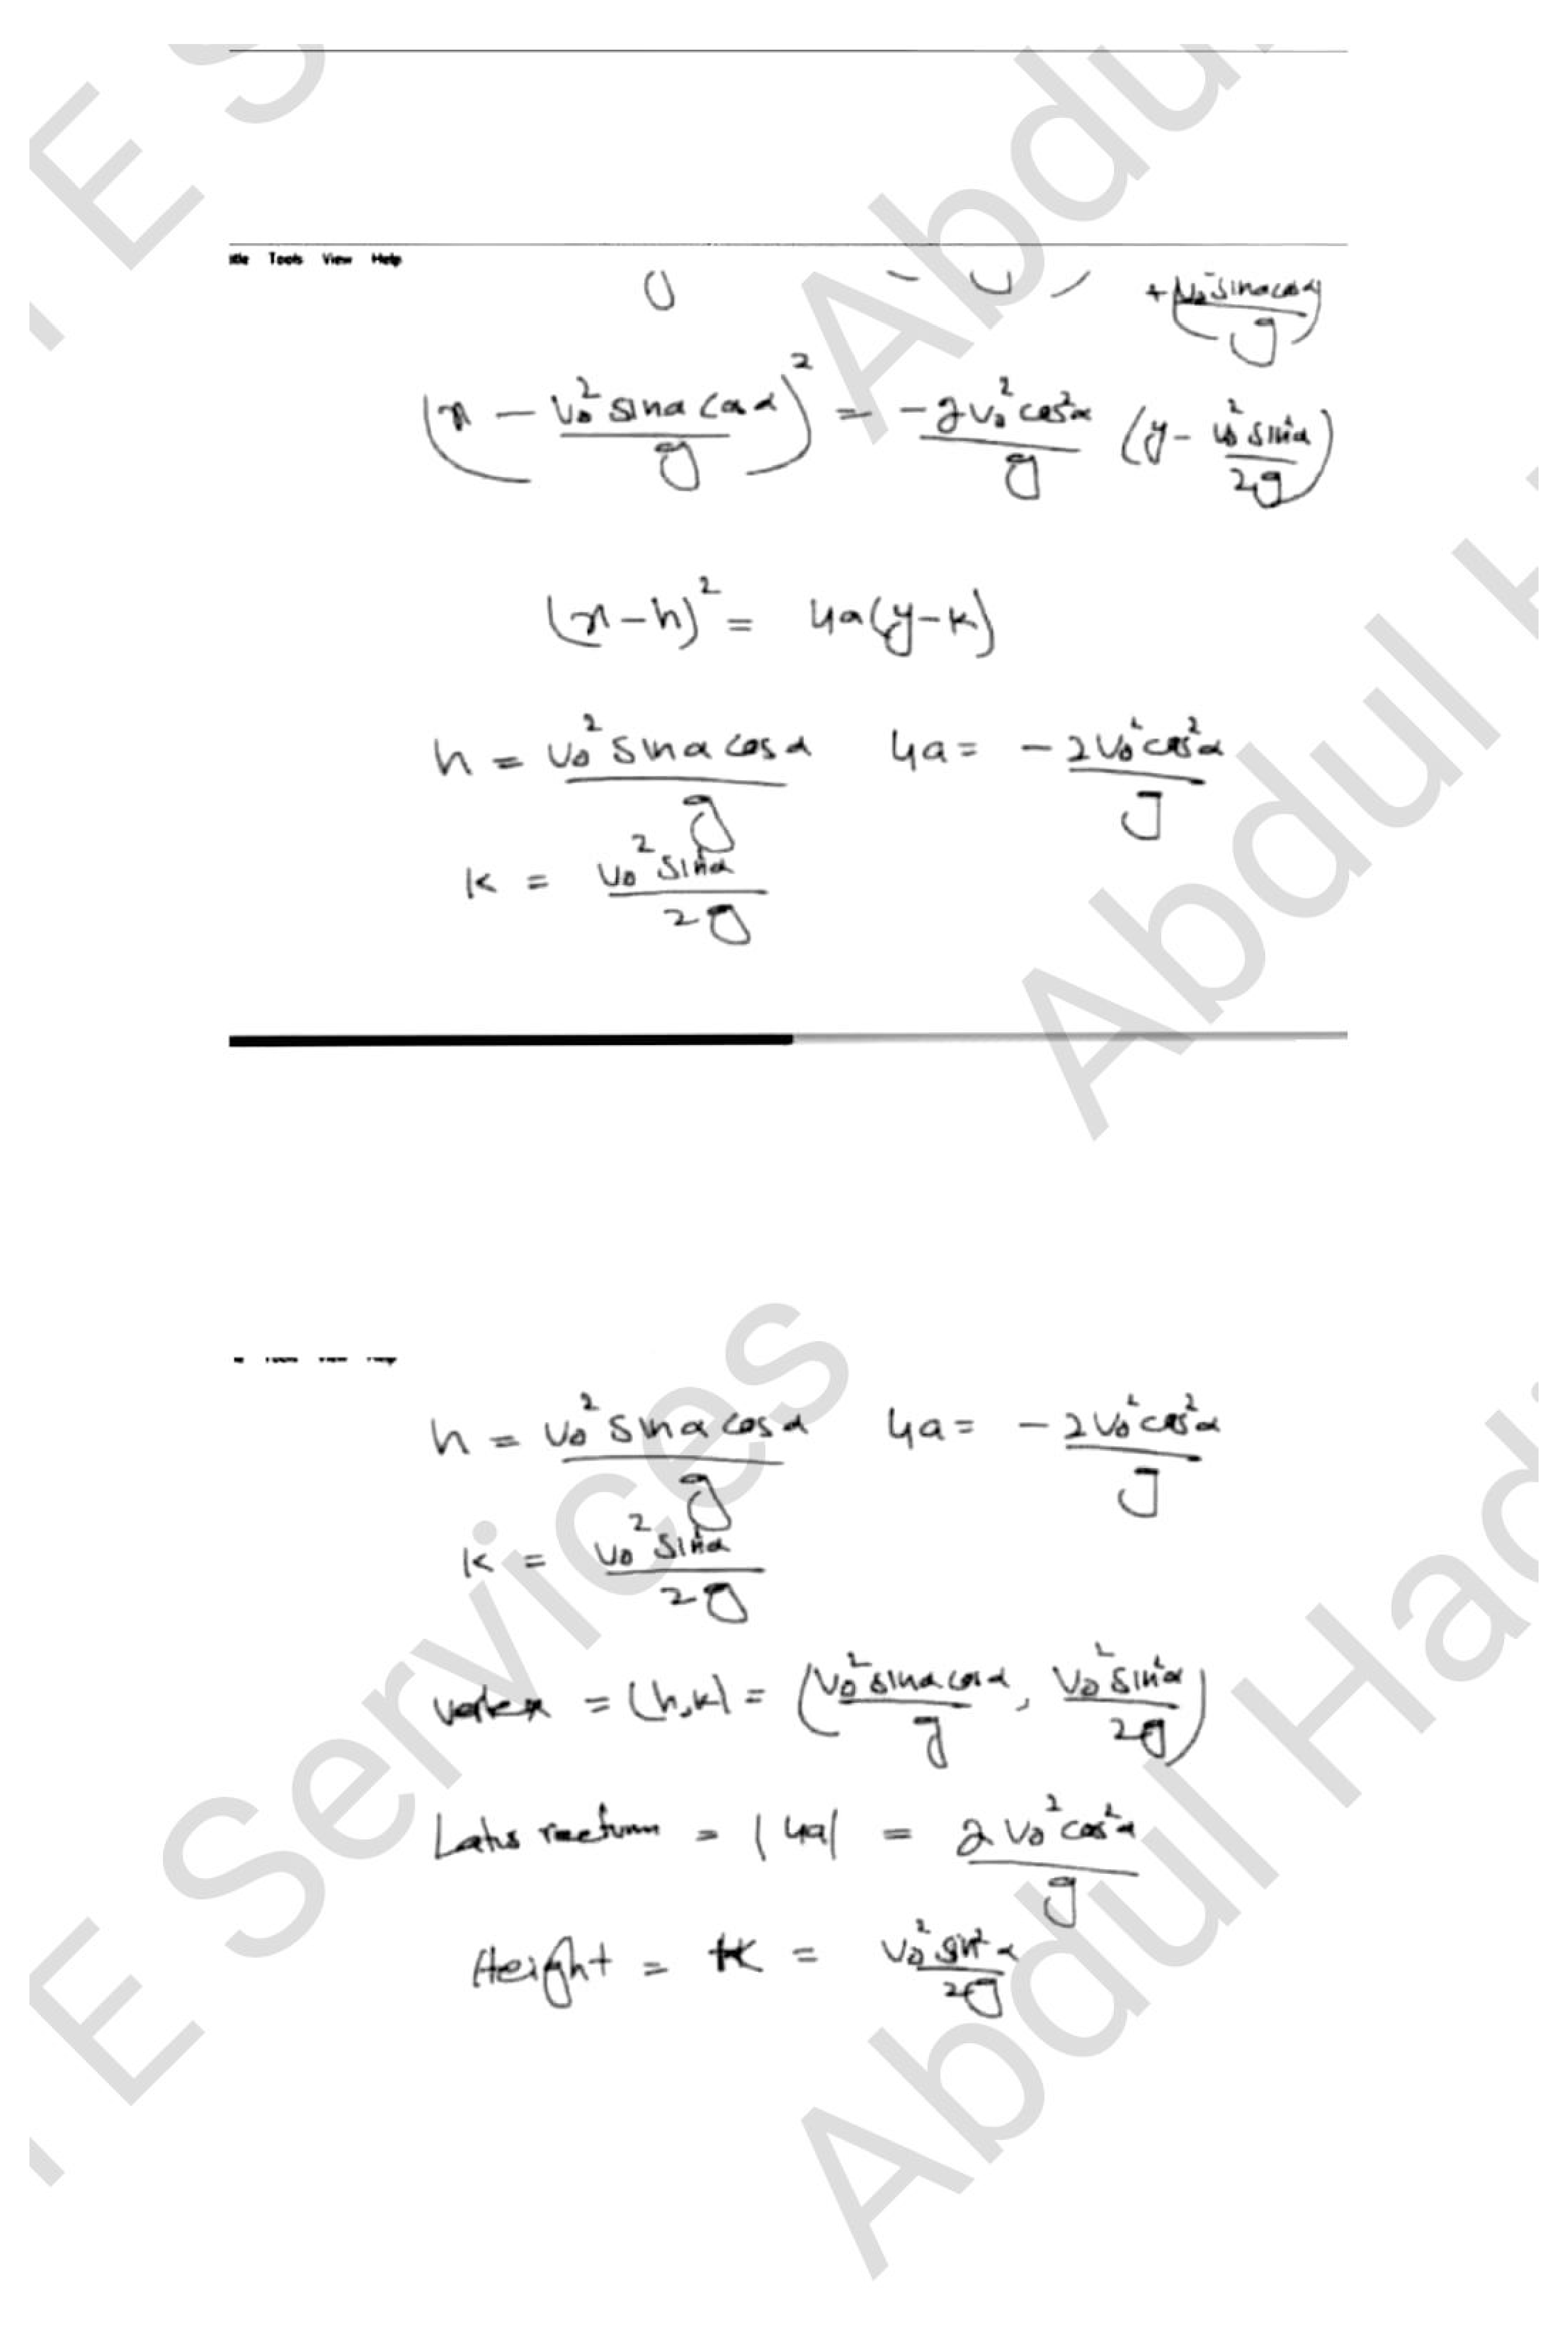 Tools View Help
+(v₀² sinα cosα / g)
(x − v₀² sinα cosα / g)² = −2v₀² cos²α / g (y − v₀² sin²α / 2g)
(x−h)² = 4a(y−k)
h = v₀² sinα cosα / g    4a = −2v₀² cos²α / g
k = v₀² sin²α / 2g
h = v₀² sinα cosα / g    4a = −2v₀² cos²α / g
k = v₀² sin²α / 2g
vertex = (h,k) = (v₀² sinα cosα / g, v₀² sin²α / 2g)
Latus rectum = |4a| = 2v₀² cos²α / g
Height = k = v₀² sin²α / 2g
E Services
Abdul Hadi